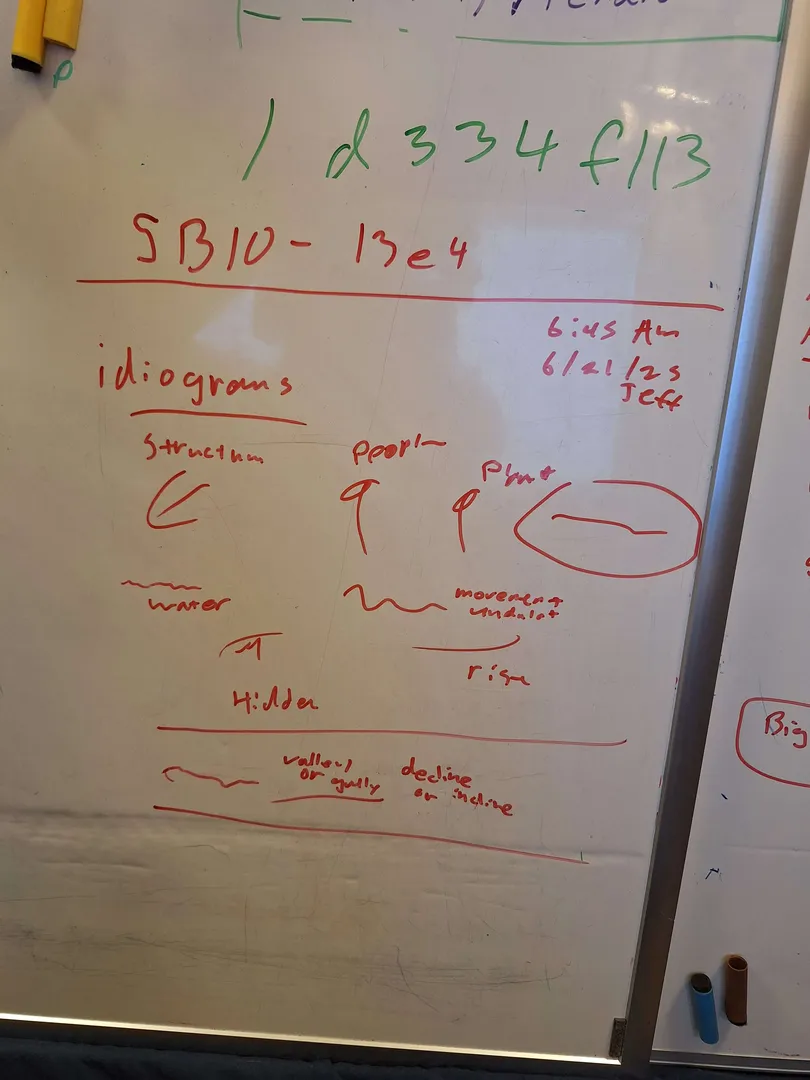 P
1 d 334 f113
SB10 - 13e4
6:45 Am
6/21/25
Jeff
idiograms
Structum
Plant
water
movement
undulat
rise
Hidden
valley
or gully
decline
or incline
Big